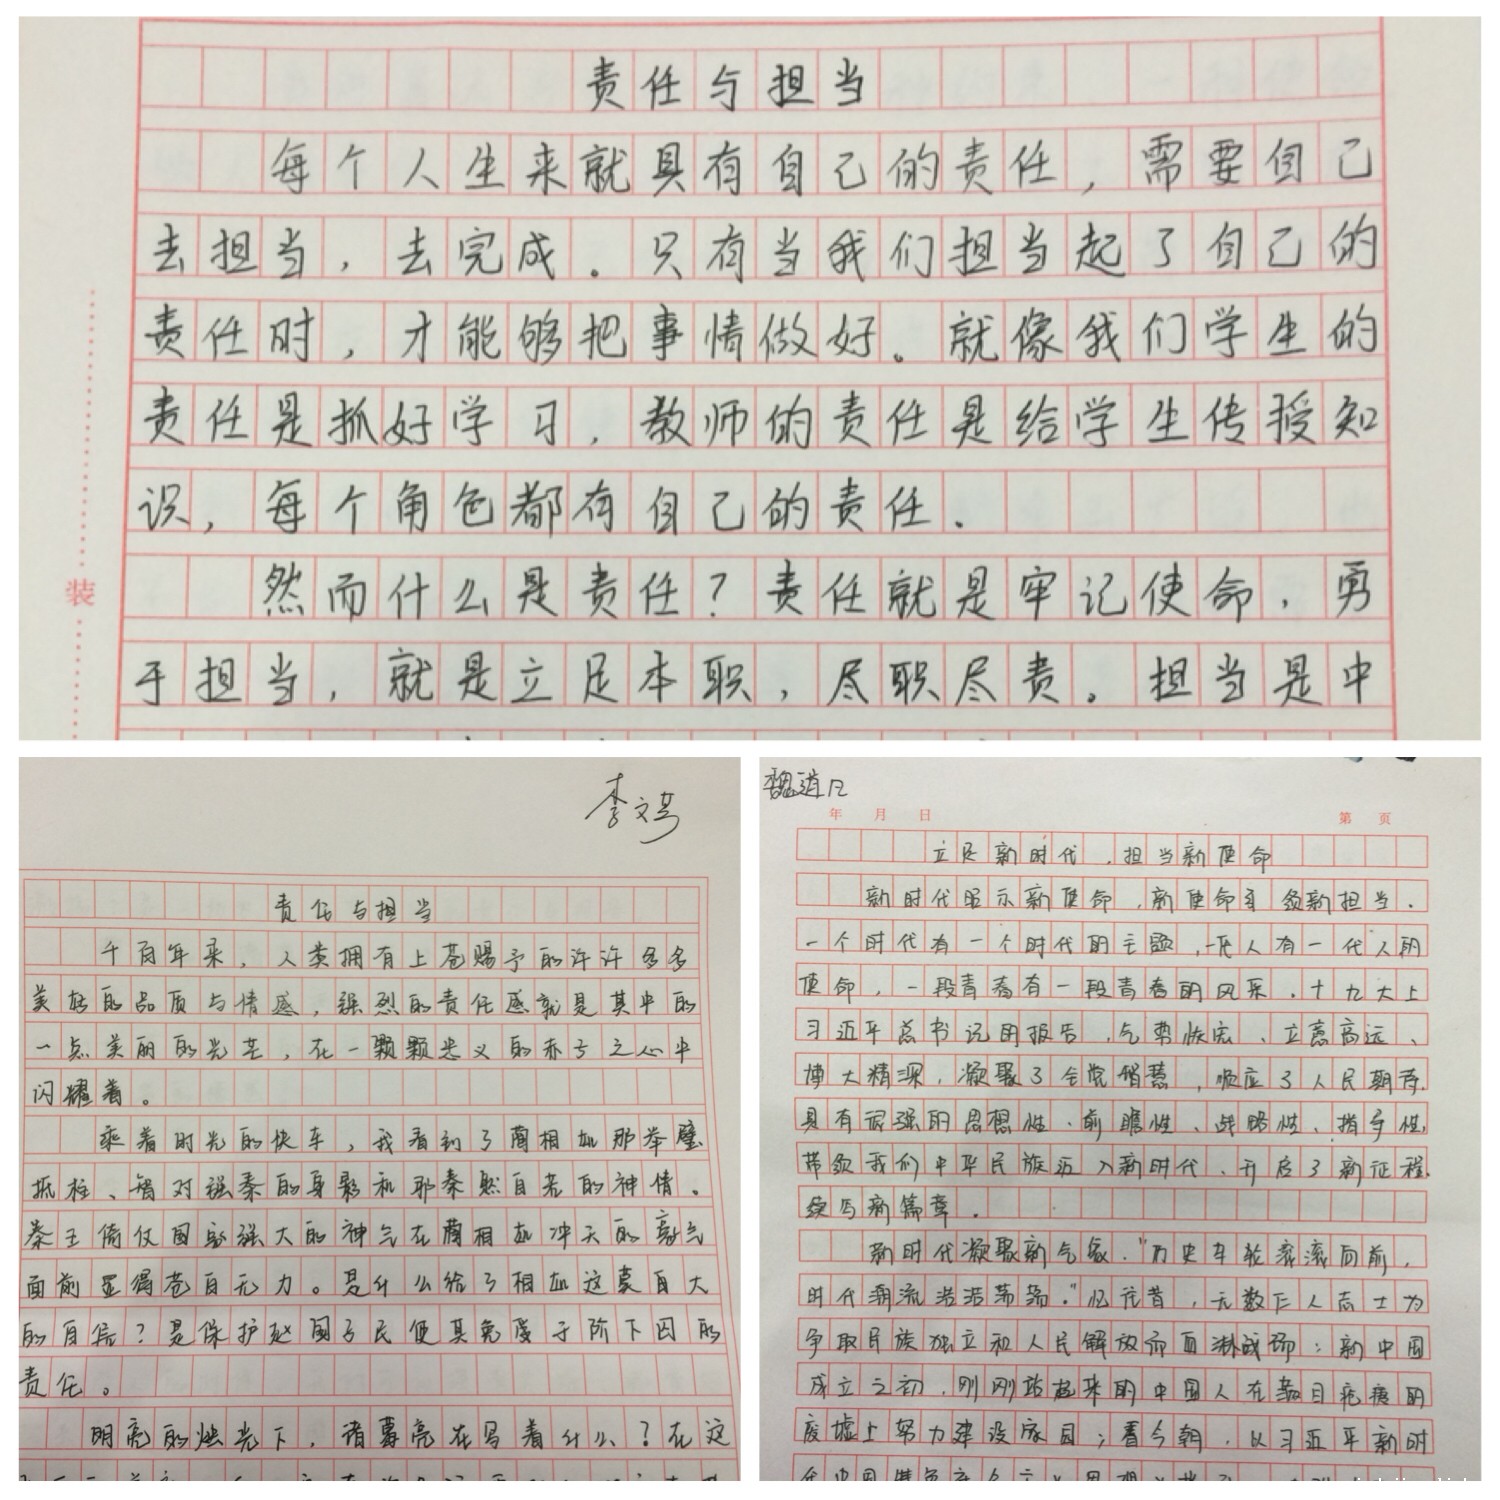 责任与担当
每个人生来就具有自己的责任,需要自己
去担当,去完成。只有当我们担当起了自己的
责任时,才能够把事情做好。就像我们学生的
责任是抓好学习,教师的责任是给学生传授知
识,每个角色都有自己的责任.
然而什么是责任?责任就是牢记使命,勇
于担当,就是立足本职,尽职尽责。担当是中
装
李文
责任与担当
千百年来,人类拥有上苍赐予的许许多多
美好的品质与情感,强烈的责任感就是其中的
一点美丽的光芒,在一颗颗忠义的赤子之心中
闪耀着。
乘着时光的快车,我看到了蔺相如那举璧
抵柱、智对强秦的身影和那泰然自若的神情。
秦王倚仗国家强大的神气在蔺相如冲天的豪气
面前显得苍白无力。是什么给了相如这豪自大
的自信?是保护赵国子民使其免受于阶下囚的
责任。
明亮的烛光下,诸葛亮在写着什么?在这
魏道
年 月 日
第 页
立足新时代,担当新使命
新时代昭示新使命,新使命需新担当.
一个时代有一个时代的主题,一代人有一代人的
使命,一段青春有一段青春的风采.十九大上
习近平总书记的报告,气势恢宏、立意高远、
博大精深,凝聚了全党智慧,顺应了人民期待,
具有很强的思想性、前瞻性、战略性、指导性,
带领我们中华民族迈入新时代、开启了新征程,
续写新篇章.
新时代凝聚新气象."历史车轮滚滚向前,
时代潮流浩浩荡荡."忆往昔,无数仁人志士为
争取民族独立和人民解放而血洒战场;新中国
成立之初,刚刚站起来的中国人在满目疮痍的
废墟上努力建设家园;看今朝,以习近平新时